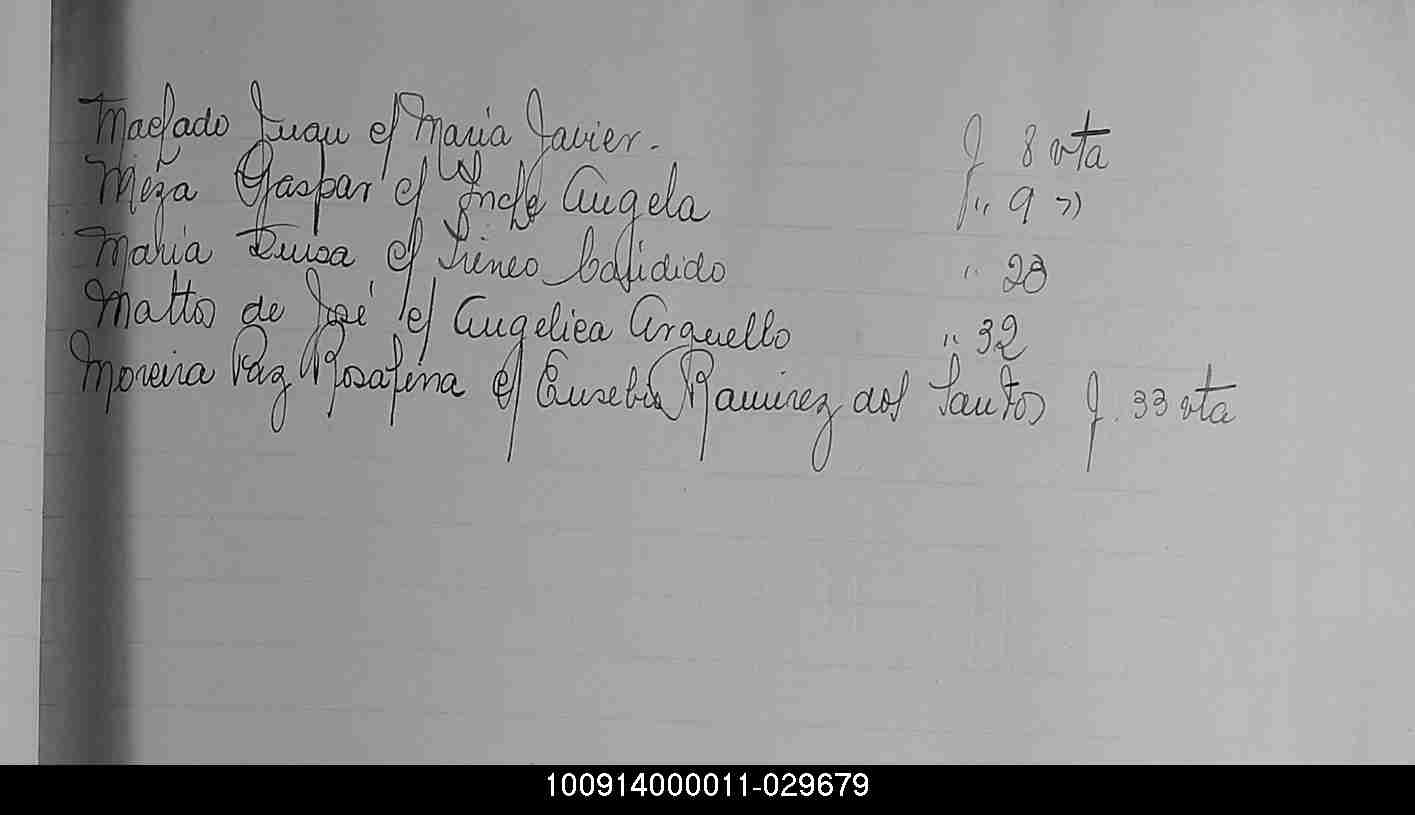 Machado Juan c/ Maria Javier. f 8 vta
Meza Gaspar c/ Angela f " 9 "
Maria Luisa c/ Irineo " 28
Mattos de José c/ Angelica Arguello " 32
Moreira Paz Rosafina c/ Eusebio Ramirez dos Santos f. 33 vta
100914000011-029679